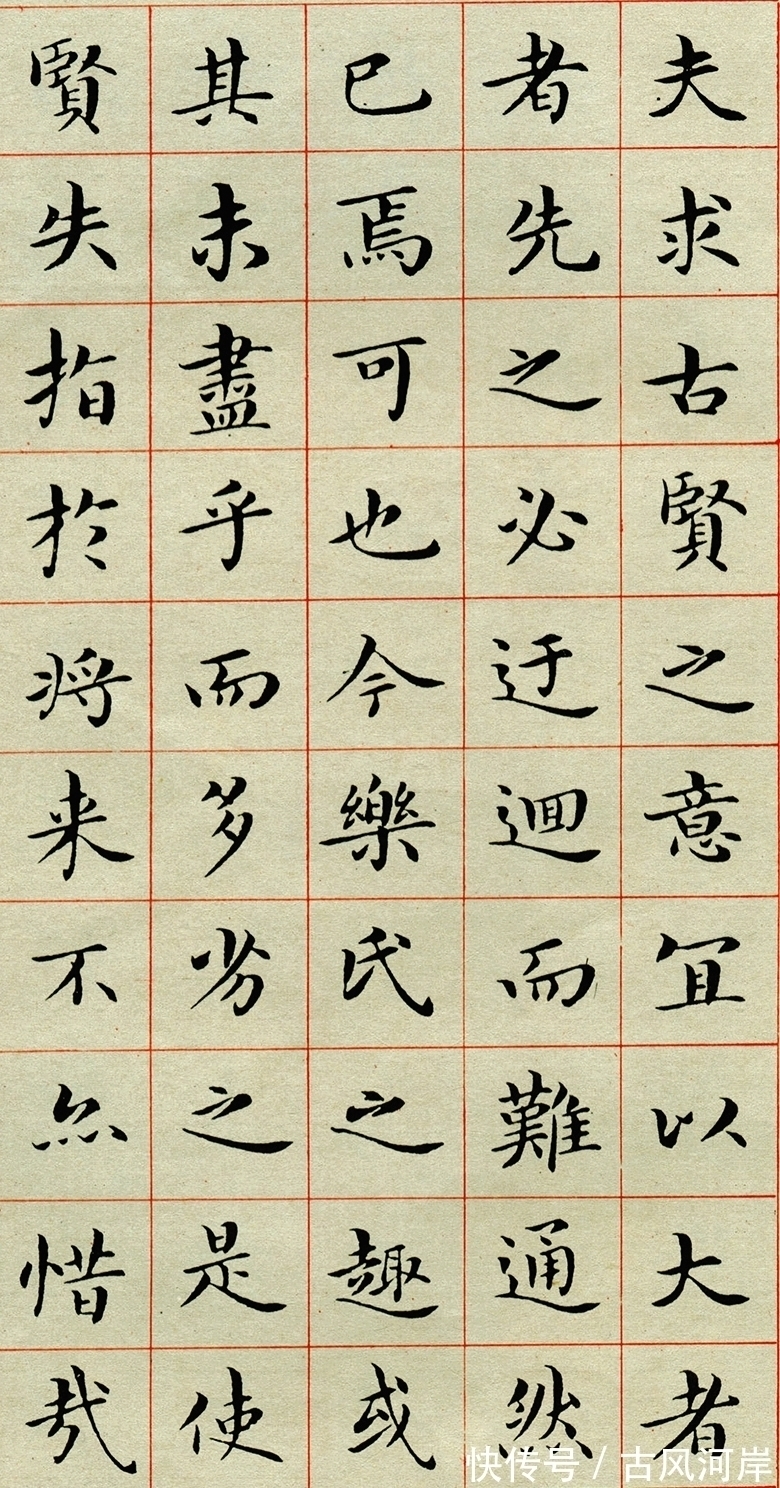 夫求古賢之意宜以大者
者先之必迂迴而難通然
已焉可也今樂氏之趣或
其未盡乎而多劣之是使
賢失指於将来不亦惜哉
快传号 / 古风河岸